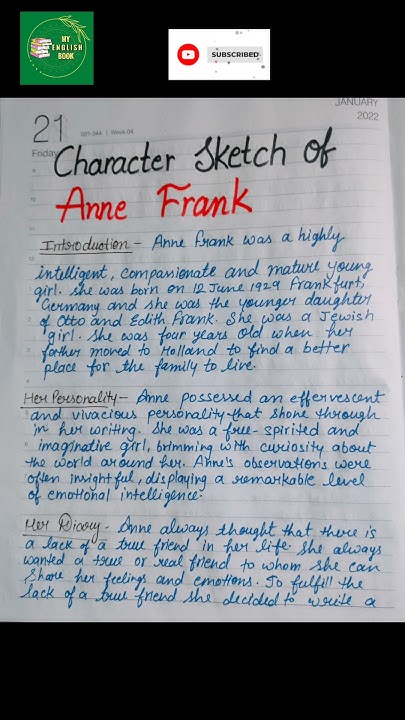 MY
ENGLISH
BOOK
SUBSCRIBED
JANUARY
2022
21
021-344 | Week 04
Friday
Character Sketch of
Anne Frank
Introduction - Anne Frank was a highly
intelligent, compassionate and mature young
girl. She was born on 12 June 1929 Frankfurt,
Germany and she was the younger daughter
of Otto and Edith Frank. She was a Jewish
girl. She was four years old when her
father moved to Holland to find a better
place for the family to live.
Her Personality - Anne possessed an effervescent
and vivacious personality that shone through
in her writing. She was a free-spirited and
imaginative girl, brimming with curiosity about
the world around her. Anne's observations were
often insightful, displaying a remarkable level
of emotional intelligence.
Her Diary - Anne always thought that there is
a lack of a true friend in her life. She always
wanted a true or real friend to whom she can
share her feelings and emotions. To fulfill the
lack of a true friend she decided to write a